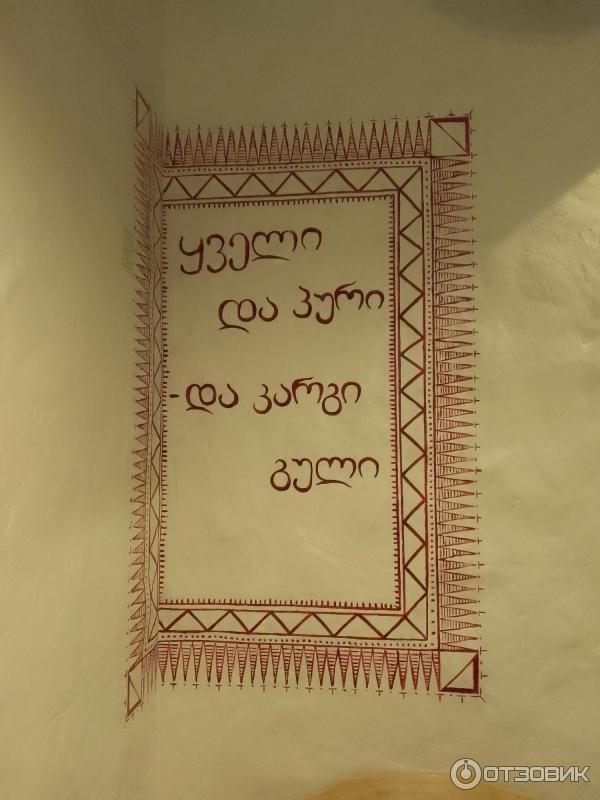 ყველი
და პური
-და კარგი
გული
ОТЗОВИК